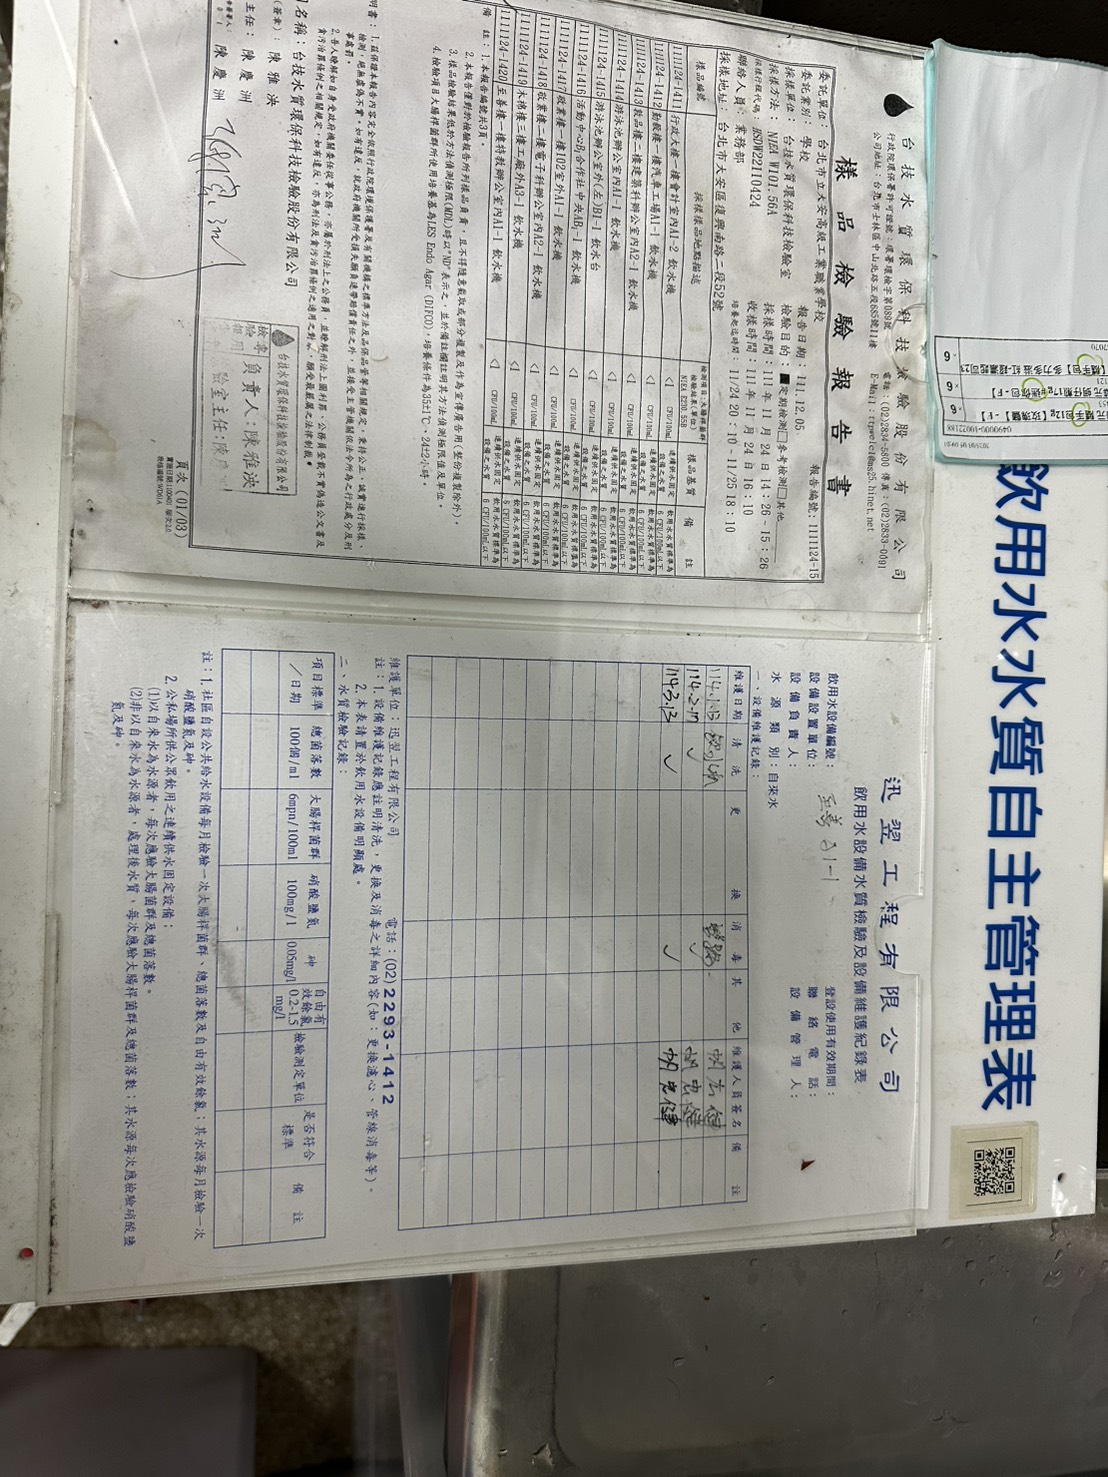 飲用水水質自主管理表
台技水質環保科技檢驗股份有限公司
行政院環保署許可證號：環署環檢字第089號
電話：(02)2834-5800 傳真：(02)2833-0091
公司地址：台北市士林區中山北路五段685號11樓
E-Mail：tpwel@ms25.hinet.net
樣品檢驗報告書
報告編號：1111124-15
委託單位：台北市立大安高級工業職業學校
報告日期：111.12.05
委託業別：學校
檢驗目的：■定期檢測□參考檢測□其他
採樣單位：台技水質環保科技檢驗室
採樣時間：111 年 11 月 24 日 14：26-15：26
採樣方法：NIEA W101.56A
收樣時間：111 年 11 月 24 日 16：10
採樣行程代碼：HSDW22110424
聯絡人員：業務部
培養起迄時間：11/24 20：10-11/25 18：10
採樣地址：台北市大安區復興南路二段52號
樣品編號 採樣樣品地點描述 檢測項目:大腸桿菌群 檢驗結果(單位) NIEA E230.55B 樣品基質 備註
1111124-1411 行政大樓一樓會計室內A1-2 飲水機 <1 CFU/100mL 連續供水固定設備之水質 飲用水水質標準為 6 CFU/100mL以下
1111124-1412 勤毅樓一樓汽車工場A1-1 飲水機 <1 CFU/100mL 連續供水固定設備之水質 飲用水水質標準為 6 CFU/100mL以下
1111124-1413 敦品樓二樓建築科辦公室內A2-1 飲水機 <1 CFU/100mL 連續供水固定設備之水質 飲用水水質標準為 6 CFU/100mL以下
1111124-1414 游泳池辦公室內A1-1 飲水機 <1 CFU/100mL 連續供水固定設備之水質 飲用水水質標準為 6 CFU/100mL以下
1111124-1415 游泳池辦公室外(左)B1-1 飲水台 <1 CFU/100mL 連續供水固定設備之水質 飲用水水質標準為 6 CFU/100mL以下
1111124-1416 活動中心B1合作社中央AB1-1 飲水機 <1 CFU/100mL 連續供水固定設備之水質 飲用水水質標準為 6 CFU/100mL以下
1111124-1417 敬業樓一樓102室外A1-1 飲水機 <1 CFU/100mL 連續供水固定設備之水質 飲用水水質標準為 6 CFU/100mL以下
1111124-1418 敬業樓二樓電子科辦公室內A2-1 飲水機 <1 CFU/100mL 連續供水固定設備之水質 飲用水水質標準為 6 CFU/100mL以下
1111124-1419 木棉樓三樓工廠外A3-1 飲水機 <1 CFU/100mL 連續供水固定設備之水質 飲用水水質標準為 6 CFU/100mL以下
1111124-1420 至善樓一樓特教辦公室內A1-1 飲水機 <1 CFU/100mL 連續供水固定設備之水質 飲用水水質標準為 6 CFU/100mL以下
備註：1.本報告編號共3頁。
2.本報告僅對於檢驗報告所列樣品負責，且不得隨意截取或部分複製及作為宣傳廣告用(整份複製除外)。
3.樣品檢驗結果低於方法偵測極限(MDL)時以"ND"表示之，並於備註欄註明其方法偵測極限值及單位。
4.檢驗項目大腸桿菌群所使用培養基為LES Endo Agar (DIFCO)，培養條件為35±1℃、24±2小時。
台技水質環保科技檢驗股份有限公司
陳雅泱
主任：陳慶洲
陳慶洲
台技水質環保科技檢驗股份有限公司
負責人：陳雅泱
頁次 (01/03)
迅翌工程有限公司
飲用水設備水質檢驗及設備維護紀錄表
飲用水設備編號：至善A1-1
登設使用有效期間：
設備設置單位：
聯絡電話：
設備負責人：
設備管理人：
水源類別：自來水
一、設備維護記錄：
維護日期 清洗 更換 消毒 其他 維護人員簽名 備註
114.1.13
114.2.17 ✓ ✓
114.3.13 ✓ ✓
維護單位：迅翌工程有限公司 電話：(02)2293-1412
註：1.設備維護記錄應註明清洗，更換及消毒之詳細內容(如：更換濾心、管線消毒等)。
2.本表請置於飲用水設備明顯處。
二、水質檢驗記錄：
項目標準/日期 總菌落數 100個/ml 大腸桿菌群 6mpn/100ml 硝酸鹽氮 100mg/l 砷 0.05mg/l 自由有效餘氯 0.2-1.5 mg/l 檢驗測定單位 是否符合標準 備註
註：1.社區自設公共給水設備每月檢驗一次大腸桿菌群、總菌落數及自由有效餘氯；其水源每月檢驗一次硝酸鹽氮及砷。
2.公私場所供公眾飲用之連續供水固定設備；
(1)以自來水為水源者，每次應驗大腸菌群及總菌落數。
(2)非以自來水為水源者，處理後水質，每次應驗大腸桿菌群及總菌落數；其水源每次應檢驗硝酸鹽氮及砷。